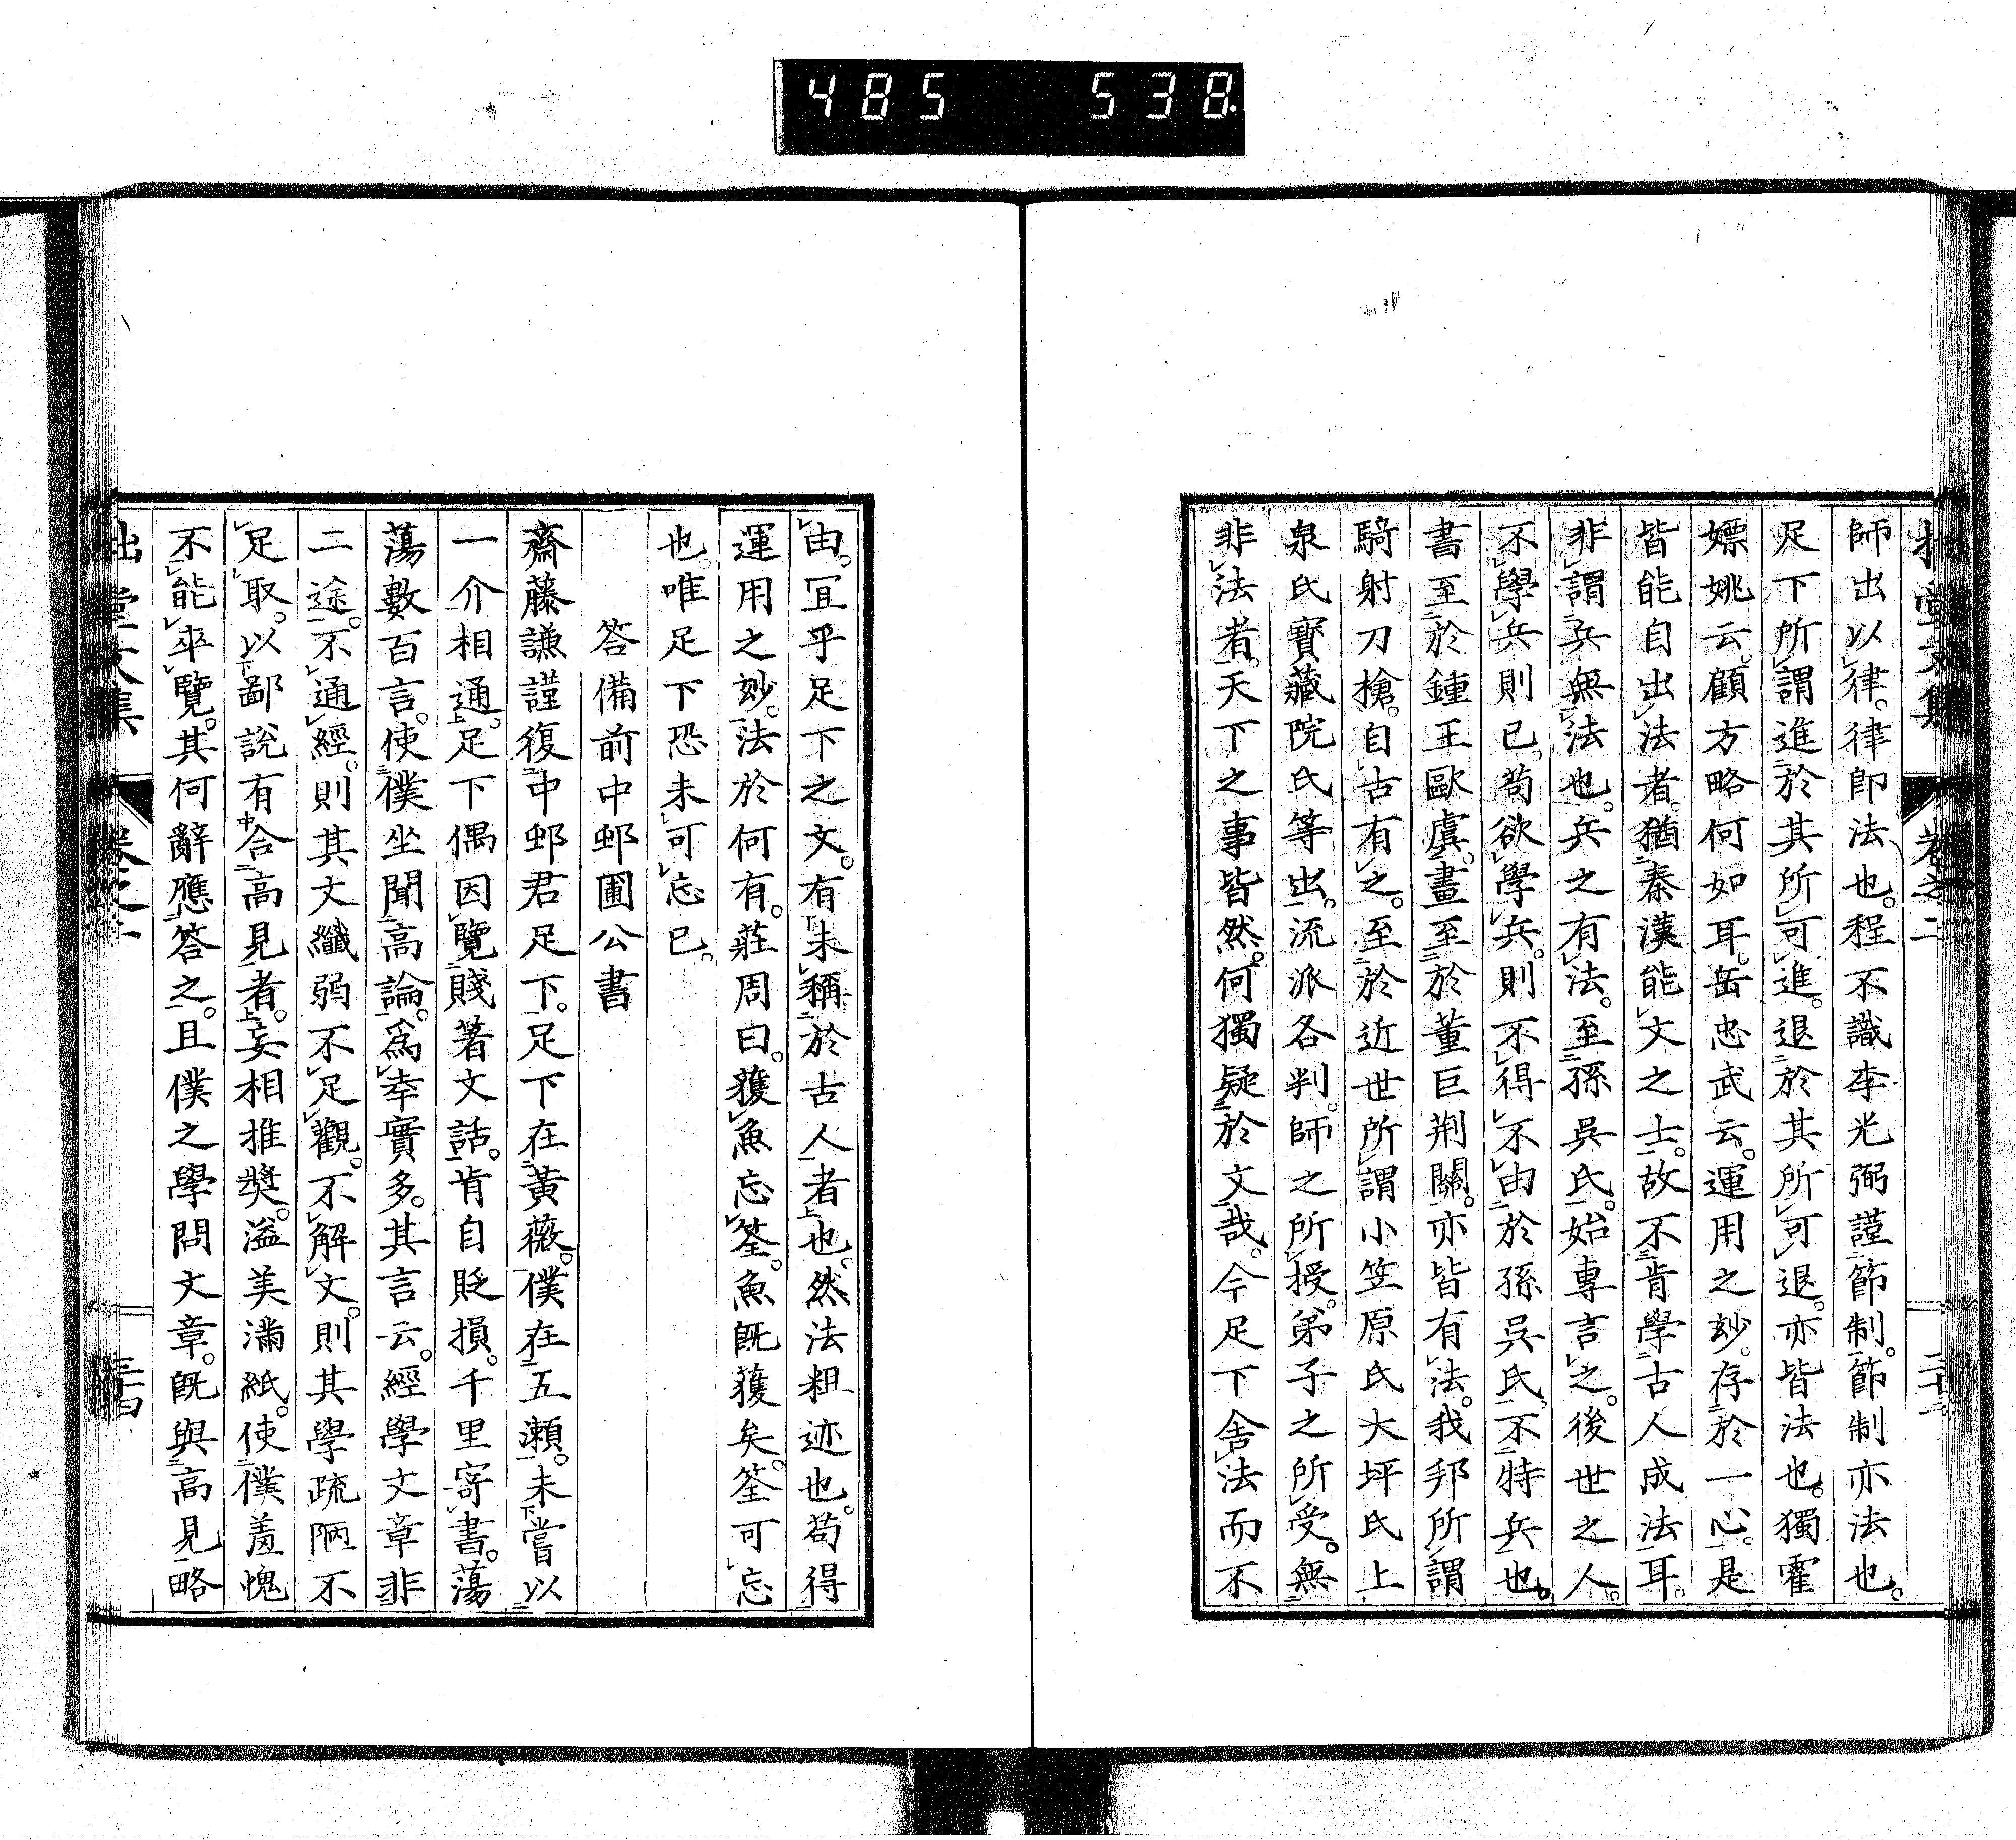 485 538
師出以律。律卽法也。程不識李光弼謹節制。節制亦法也。
足下所謂進於其所可進。退於其所可退。亦皆法也。獨霍
嫖姚云。顧方略何如耳。岳忠武云。運用之妙。存於一心。是
皆能自出法者。猶秦漢能文之士。故不肯學古人成法耳。
非謂兵無法也。兵之有法。至孫吳氏。始專言之。後世之人。
不學兵則已。苟欲學兵。則不得不由於孫吳氏。不特兵也。
書至於鍾王歐虞。畫至於董巨荆關。亦皆有法。我邦所謂
騎射刀槍。自古有之。至於近世所謂小笠原氏大坪氏上
泉氏寶藏院氏等出。流派各判。師之所授。弟子之所受。無
非法者。天下之事皆然。何獨疑於文哉。今足下舍法而不
由。冝乎足下之文。有未稱於古人者也。然法粗迹也。苟得
運用之妙。法於何有。莊周曰。獲魚忘筌。魚旣獲矣。筌可忘
也。唯足下恐未可忘已。
答備前中邨圃公書
齋藤謙謹復中邨君足下。足下在黃薇。僕在五瀨。未嘗以
一介相通。足下偶因覽賤著文話。肯自貶損。千里寄書。蕩
蕩數百言。使僕坐聞高論。爲幸實多。其言云。經學文章非
二途。不通經。則其文纖弱不足觀。不解文。則其學疏陋不
足取。以鄙說有合高見者。妄相推奬。溢美滿紙。使僕羞愧
不能卒覽。其何辭應答之。且僕之學問文章。旣與高見略